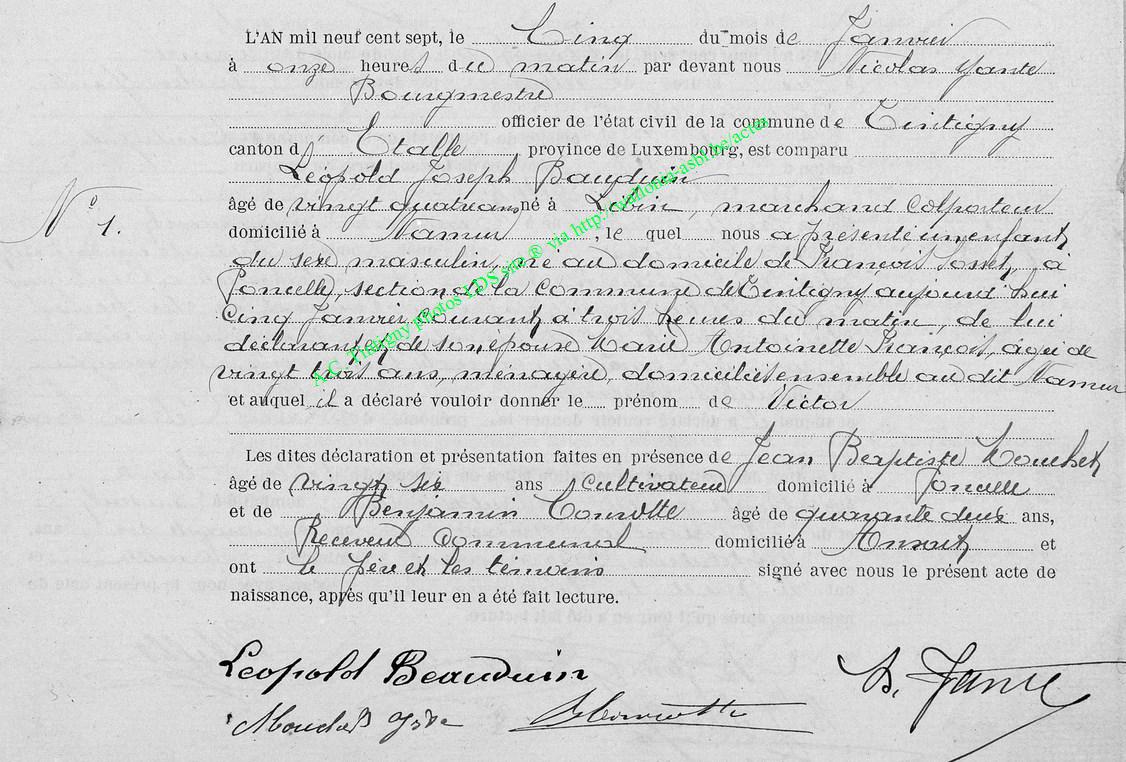 L'AN mil neuf cent sept, le Cinq du mois de Janvier
à onze heures du matin par devant nous Nicolas Jante
Bourgmestre
officier de l'état civil de la commune de Tintigny
canton d Etalle province de Luxembourg, est comparu
Léopold Joseph Bauduin
N° 1.
âgé de vingt quatre ans né à , marchand colporteur
domicilié à Namur, le quel nous a présenté un enfant
du sexe masculin, né au domicile de François Josset, à
Poncelle, section de la commune de Tintigny aujourd'hui
cinq Janvier courant à trois heures du matin, de lui
déclarant et de son épouse Marie Antoinette François, agée de
vingt trois ans, ménagère, domiciliés ensemble au dit Namur
et auquel il a déclaré vouloir donner le prénom de Victor
Les dites déclaration et présentation faites en présence de Jean Baptiste Mouchet
âgé de vingt six ans cultivateur domicilié à Poncelle
et de Benjamin Courotte âgé de quarante deux ans,
Receveur Communal domicilié à Ansart et
ont le père et les témoins signé avec nous le présent acte de
naissance, après qu'il leur en a été fait lecture.
Leopold Beauduin
N. Jante
Mouchet
B Courotte
A.C. Tintigny photos YDS sàr® via http://wallonia-asbl.be/actes